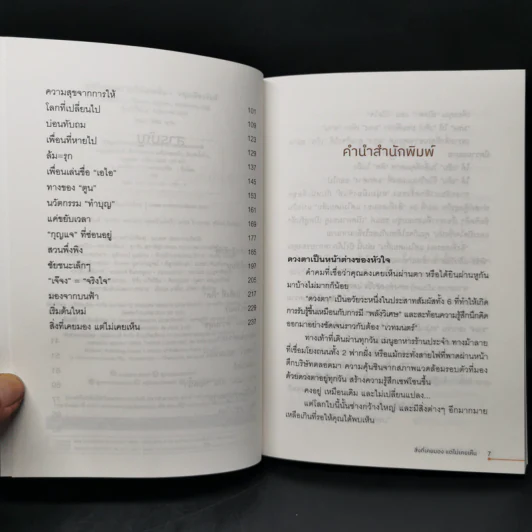 ความสุขจากการให้
โลกที่เปลี่ยนไป 101
บ่อนทับถม 109
เพื่อนที่หายไป 123
ล้ม=รุก 129
เพื่อนเล่นชื่อ "เอไอ" 137
ทางของ "ตูน" 145
นวัตกรรม "ทำบุญ" 155
แค่ขยับเวลา 161
"กุญแจ" ที่ซ่อนอยู่ 169
สวนพึ่งพิง 177
ชัยชนะเล็กๆ 185
"เจ๊จง" = "จริงใจ" 197
มองจากบนฟ้า 205
เริ่มต้นใหม่ 221
สิ่งที่เคยมอง แต่ไม่เคยเห็น 237
คำนำสำนักพิมพ์
ดวงตาเป็นหน้าต่างของหัวใจ
คำคมที่เชื่อว่าคุณคงเคยเห็นผ่านตา หรือได้ยินผ่านหูกัน
มาบ้างไม่มากก็น้อย
"ดวงตา" เป็นอวัยวะหนึ่งในประสาทสัมผัสทั้ง 6 ที่ทำให้เกิด
การรับรู้ขึ้นเหมือนกับการมี "พลังวิเศษ" และสะท้อนความรู้สึกนึกคิด
ออกมาอย่างชัดเจนราวกับต้อง "เวทมนตร์"
ทางเท้าที่เดินผ่านทุกวัน เมนูอาหารร้านประจำ ทางม้าลาย
ที่เชื่อมโยงถนนทั้ง 2 ฟากฝั่ง หรือแม้กระทั่งสายไฟที่พาดผ่านหน้า
ตึกบริษัทตลอดมา ความคุ้นชินจากสภาพแวดล้อมรอบตัวที่มอง
ด้วยดวงตาอยู่ทุกวัน สร้างความรู้สึกเซฟโซนขึ้น
คงอยู่ เหมือนเดิม และไม่เปลี่ยนแปลง...
แต่โลกใบนี้นั้นช่างกว้างใหญ่ และมีสิ่งต่างๆ อีกมากมาย
เหลือเกินที่รอให้คุณได้พบเห็น
สิ่งที่เคยมอง แต่ไม่เคยเห็น 7